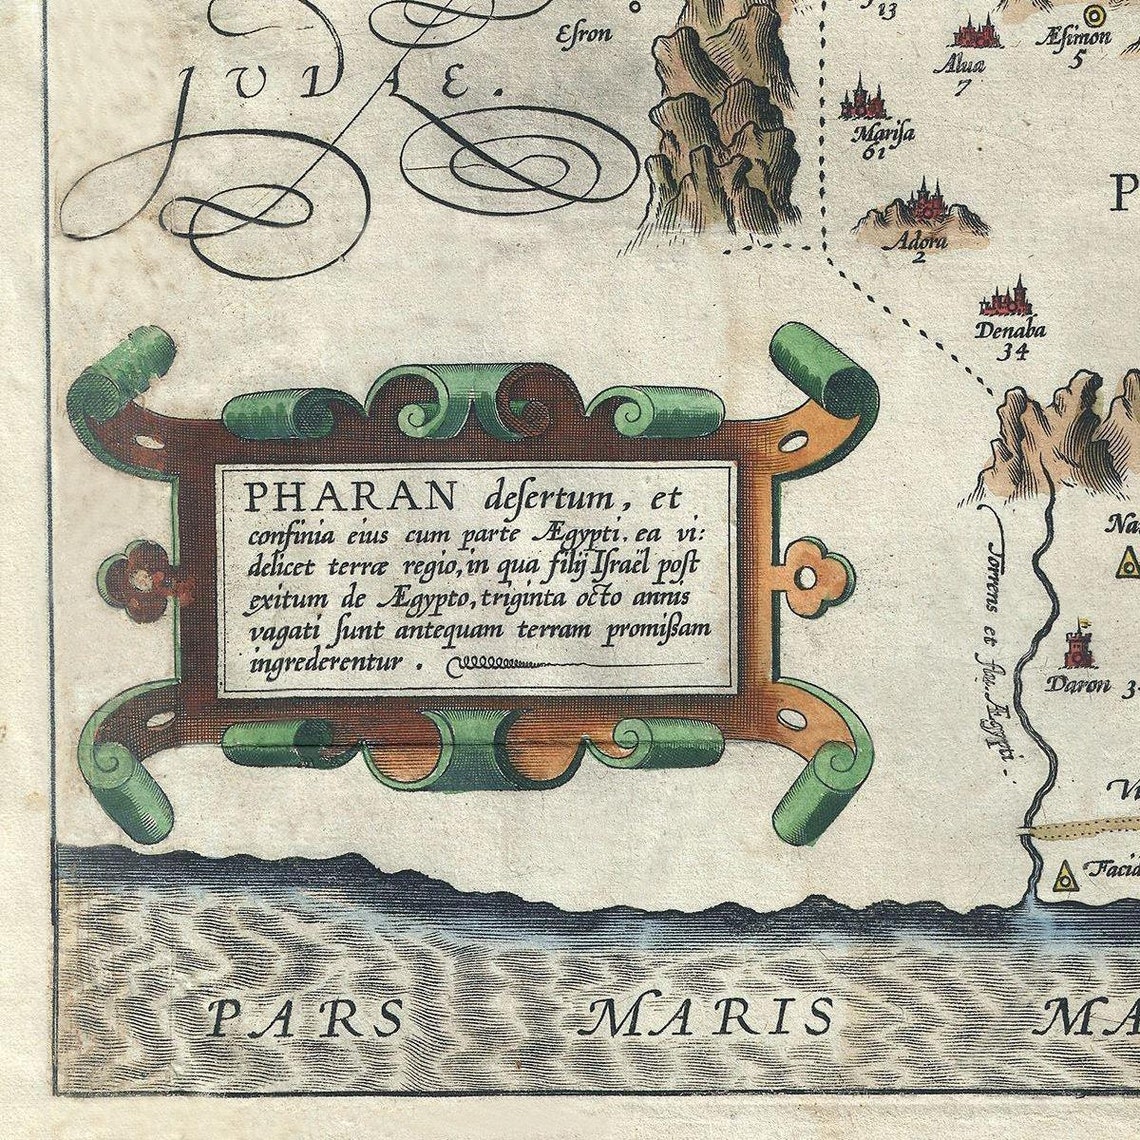 Eſron
13
Alua
7
Æſimon
5
IVDAE.
Mariſa
61
P
Adora
2
Denaba
34
PHARAN deſertum, et
confinia eius cum parte Ægypti, ea vi:
delicet terræ regio, in qua filij Iſraël poſt
exitum de Ægypto, triginta octo annis
vagati ſunt antequam terram promißam
ingrederentur .
Torrens et flu. Ægypti.
Na
Daron 3
Vi
Facid
PARS MARIS MA